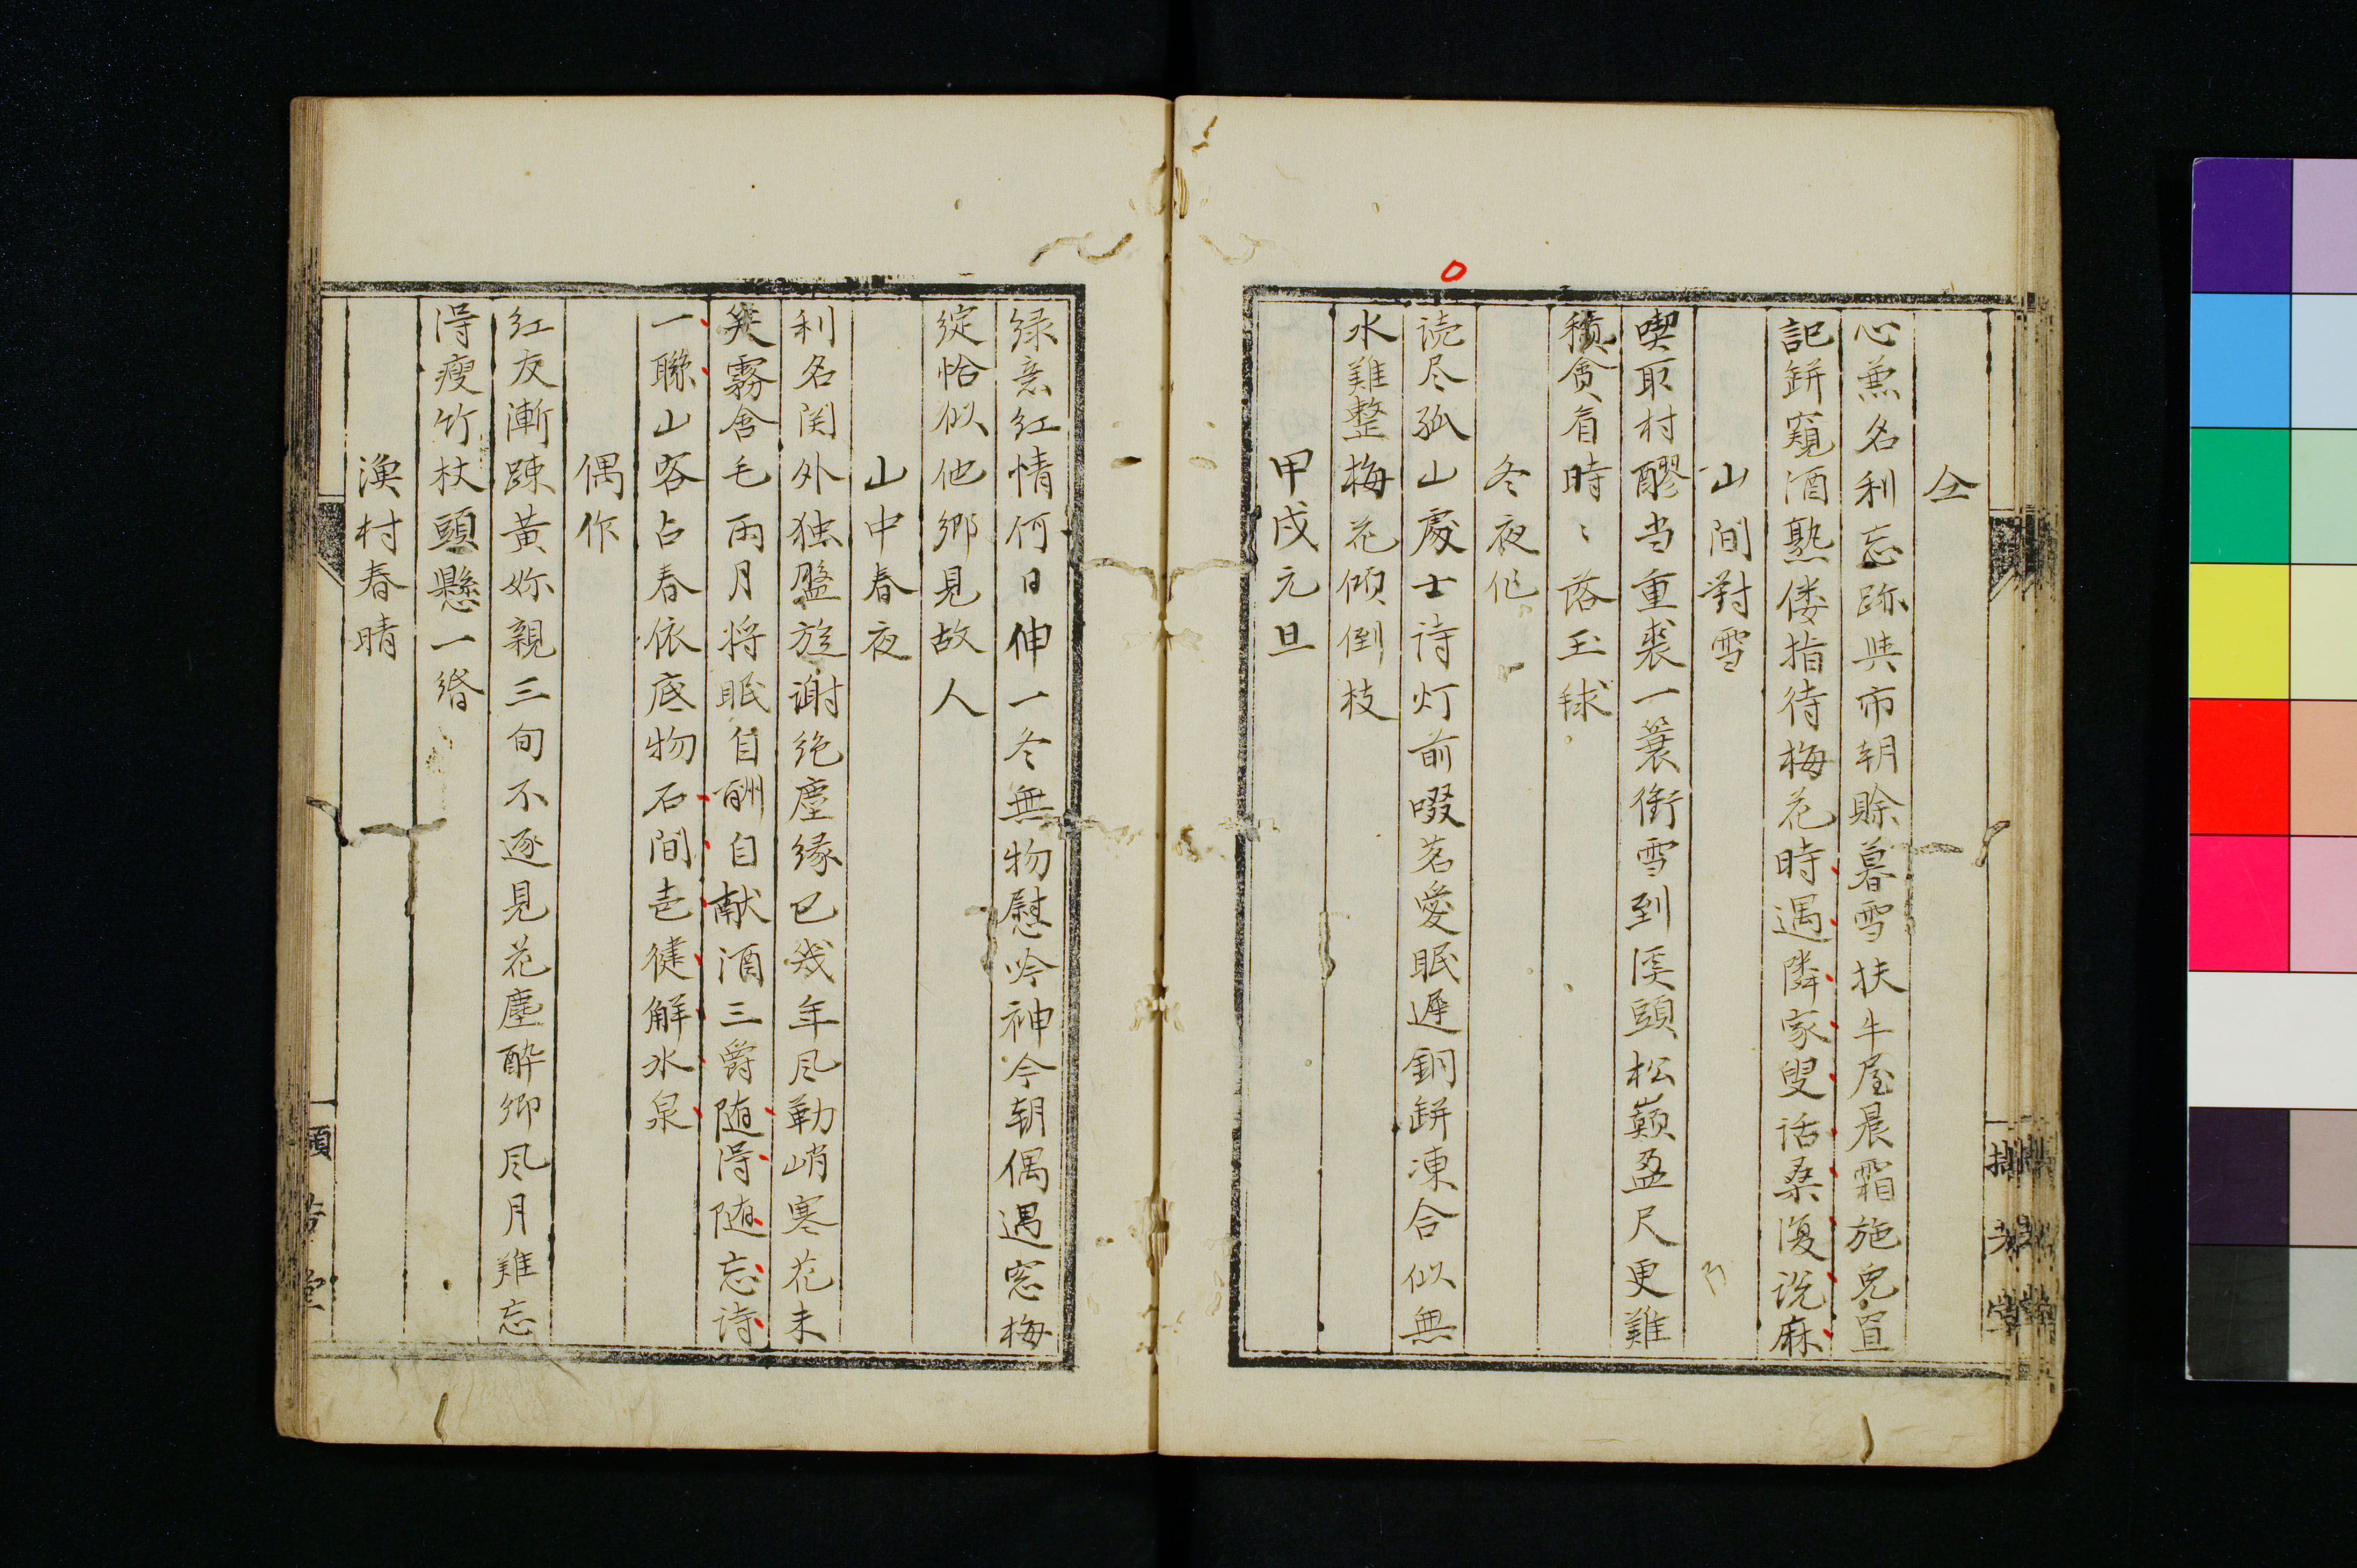 仝
心兼名利忘跡與市朝賖暮雪扶牛屋晨霜施兔罝
記缾窺酒熟倭指待梅花時遇隣家叟話桑復说麻
山間對雪
喫取村醪当重裘一簑衝雪到溪頭松巔盈尺更難
積貪看時〻落玉球
冬夜作
读尽孤山處士诗灯前啜茗愛眠遲銅缾凍合似無
水難整梅花傾倒枝
甲戌元旦
緑意紅情何日伸一冬無物慰吟神今朝偶遇窓梅
綻恰似他鄉見故人
山中春夜
利名関外独盤旋谢絶塵縁已幾年風勒峭寒花未
笑霧含毛雨月将眠自酬自献酒三爵随得随忘诗
一聯山客占春依底物石間走徤解氷泉
偶作
紅友漸踈黃妳親三旬不逐見花塵酔卿風月難忘
得瘦竹杖頭懸一緡
漁村春晴